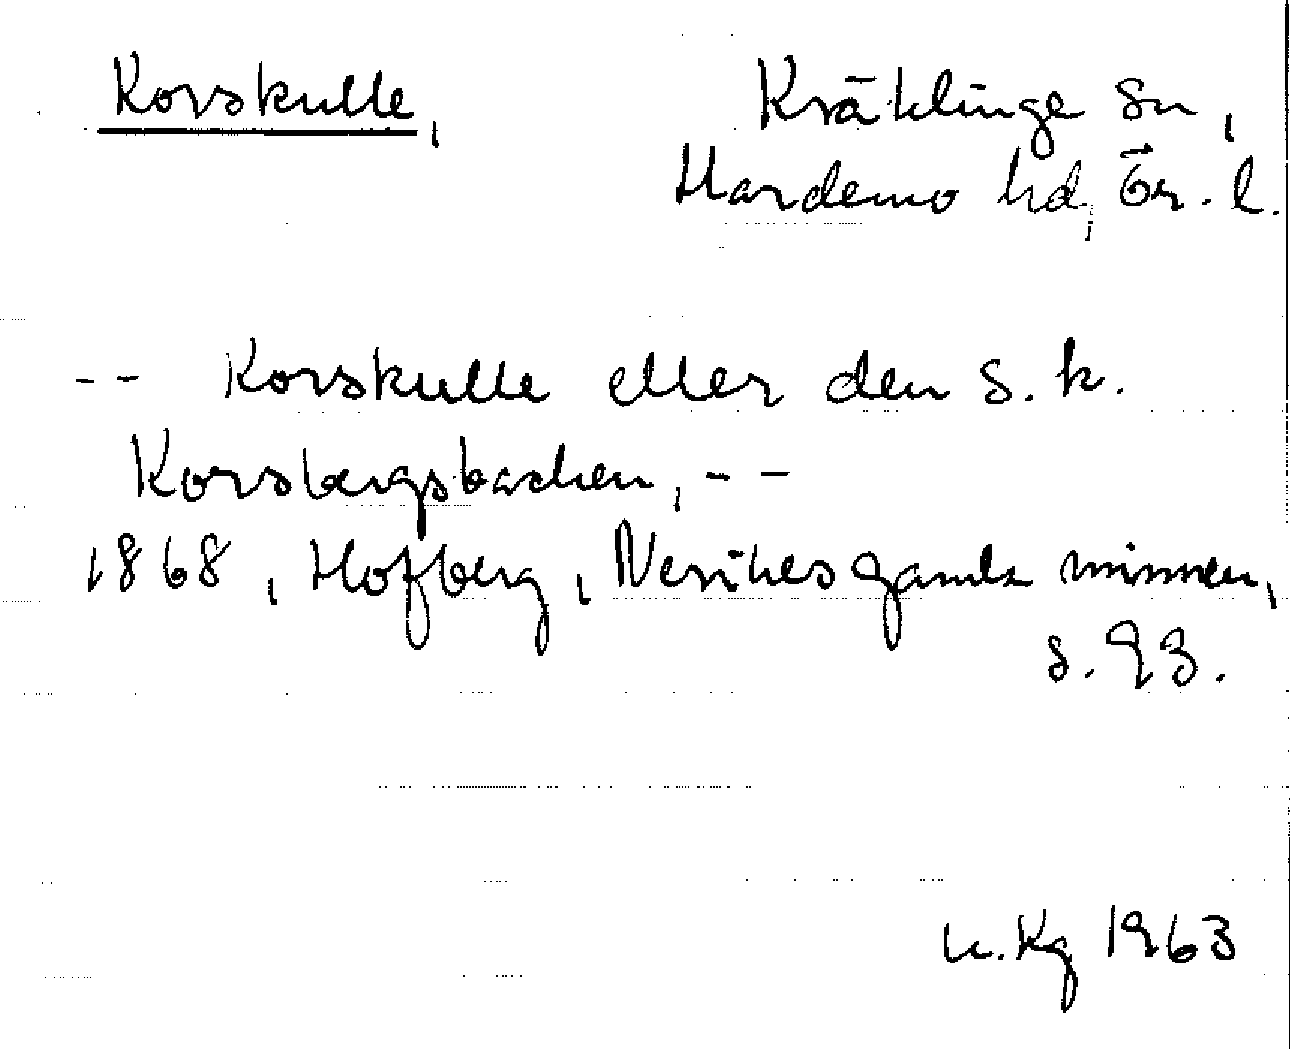 Korskulle, Kräklinge sn,
Hardemo hd, Ör. l.
-- Korskulle eller den s.k.
Korsbergsbacken, --
1868, Hofberg, Nerikes gamla minnen,
s. 93.
u. Kg 1963